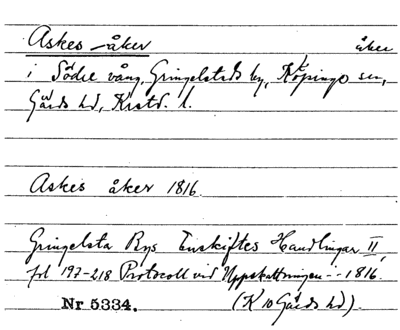 Askes-åker åker
i Södre vång, Gringelstads by, Köpinge sn,
Gärds hd, Krstd. l.
Askes åker 1816.
Gringelsta Bys Enskiftes Handlingar II,
fol 197-218 Protocoll vid Uppskattningen -- 1816.
Nr 5334. (K 10 Gärds hd).